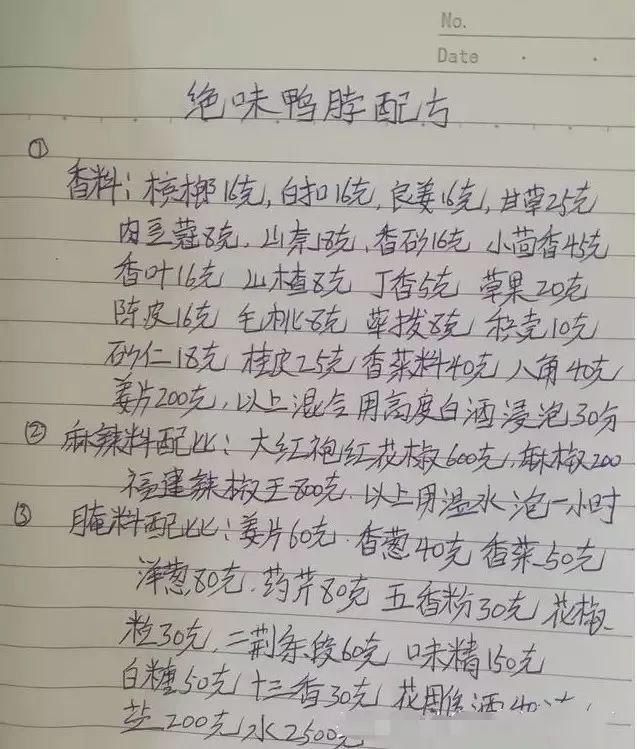 No.
Date
绝味鸭脖配方
①
香料：槟榔16克，白扣16克，良姜16克，甘草25克
肉豆蔻8克，山奈18克，香砂16克 小茴香45克
香叶16克 山楂8克 丁香5克 草果20克
陈皮16克 毛桃8克 荜拨8克 积壳10克
砂仁18克 桂皮25克 香菜料40克 八角40克
姜片200克，以上混合用高度白酒浸泡30分
② 麻辣料配比：大红袍红花椒600克，麻椒200
福建辣椒王800克，以上用温水泡一小时
③ 腌料配比：姜片60克．香葱40克 香菜50克
洋葱80克．药芹80克 五香粉30克 花椒
粒30克，二荆条段60克 味精150克
白糖50克 十三香30克 花雕酒40
盐200克 水2500克